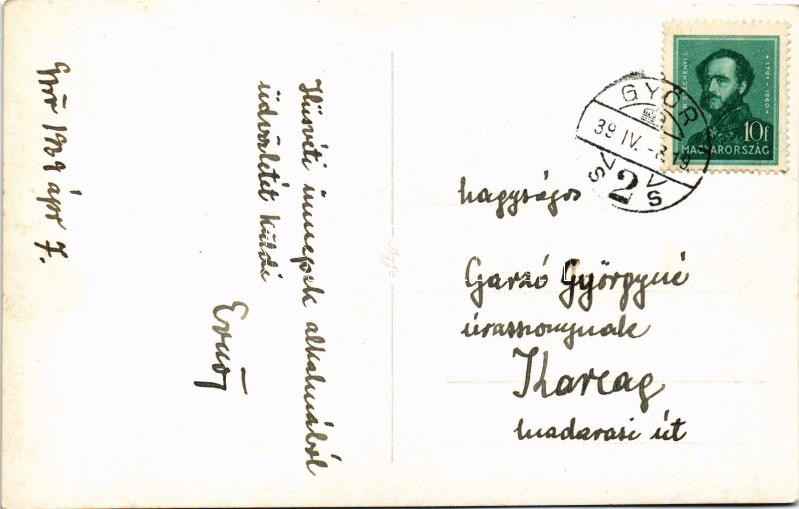 Győr 1939 ápr 7.
Húsvéti ünnepek alkalmából
üdvözletét küldi
Ernő
SZÉCHENYI I.
1791-1860
10f
MAGYARORSZÁG
GYŐR
39 IV. -8. 19
2
nagyságos
Garzó Györgyné
úrasszonynak
Karcag
madarasi út